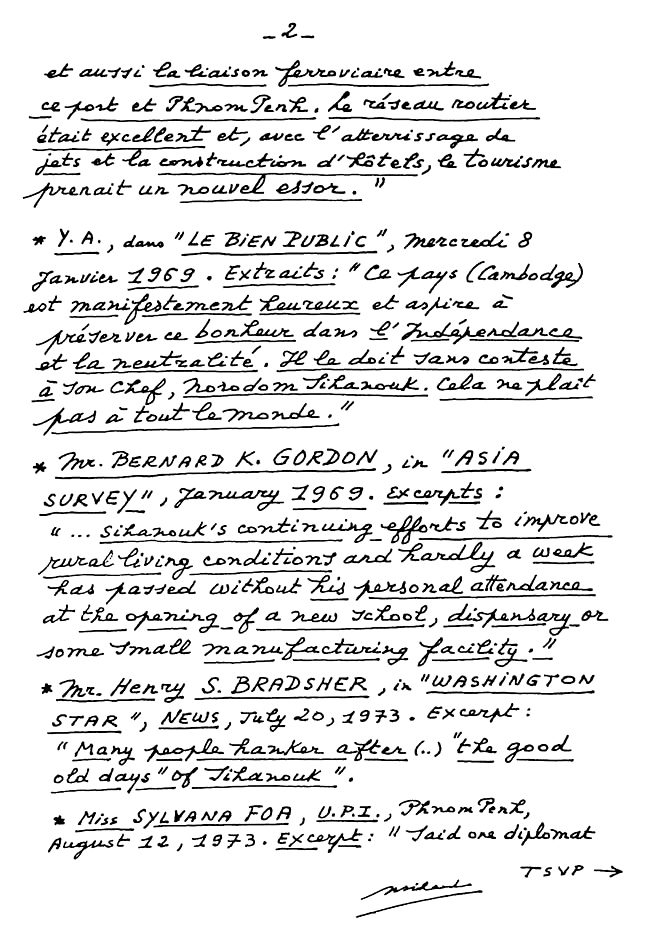 _ 2 _
et aussi la liaison ferroviaire entre
ce port et Phnom Penh. Le réseau routier
était excellent et, avec l'atterrissage de
jets et la construction d'hôtels, le tourisme
prenait un nouvel essor."
* Y. A., dans "LE BIEN PUBLIC", Mercredi 8
Janvier 1969. Extraits: "Ce pays (Cambodge)
est manifestement heureux et aspire à
préserver ce bonheur dans l'Indépendance
et la neutralité. Il le doit sans conteste
à son Chef, Norodom Sihanouk. Cela ne plait
pas à tout le monde."
* Mr. BERNARD K. GORDON, in "ASIA
SURVEY", January 1969. Excerpts:
"... Sihanouk's continuing efforts to improve
rural living conditions and hardly a week
has passed without his personal attendance
at the opening of a new school, dispensary or
some small manufacturing facility."
* Mr. Henry S. BRADSHER, in "WASHINGTON
STAR", NEWS, July 20, 1973. Excerpt:
"Many people hanker after (..) "the good
old days" of Sihanouk".
* Miss SYLVANA FOA, U.P.I., Phnom Penh,
August 12, 1973. Excerpt: "Said one diplomat
TSVP →